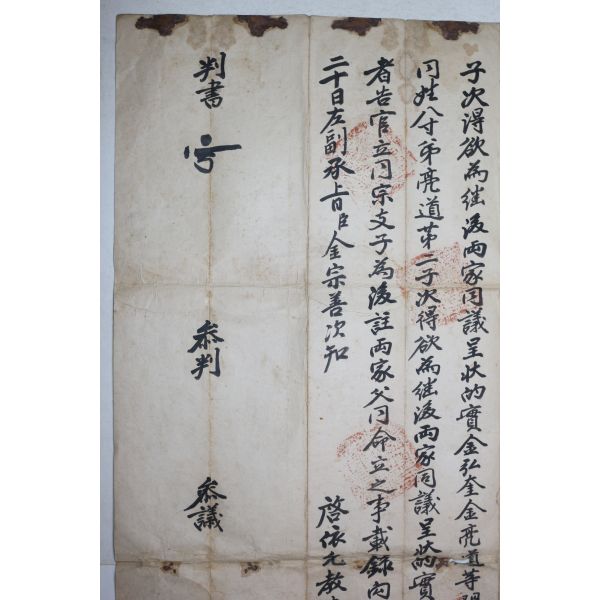 子次得欲為継後両家同議呈状的實金弘奎金亮道等
同姓八寸弟亮道苐二子次得欲為継後両家同議呈状的實
者告官立同宗支子為後註両家父同命立之事載錄內
二十日左副承旨臣金宗善次知
啓依允教
判書
叅判
叅議